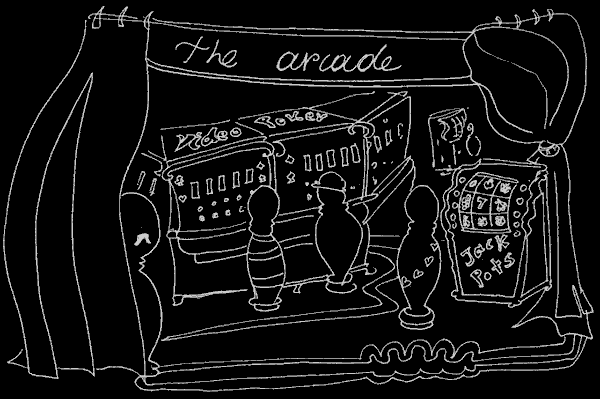 the arcade
Video Poker
Jack
Pots